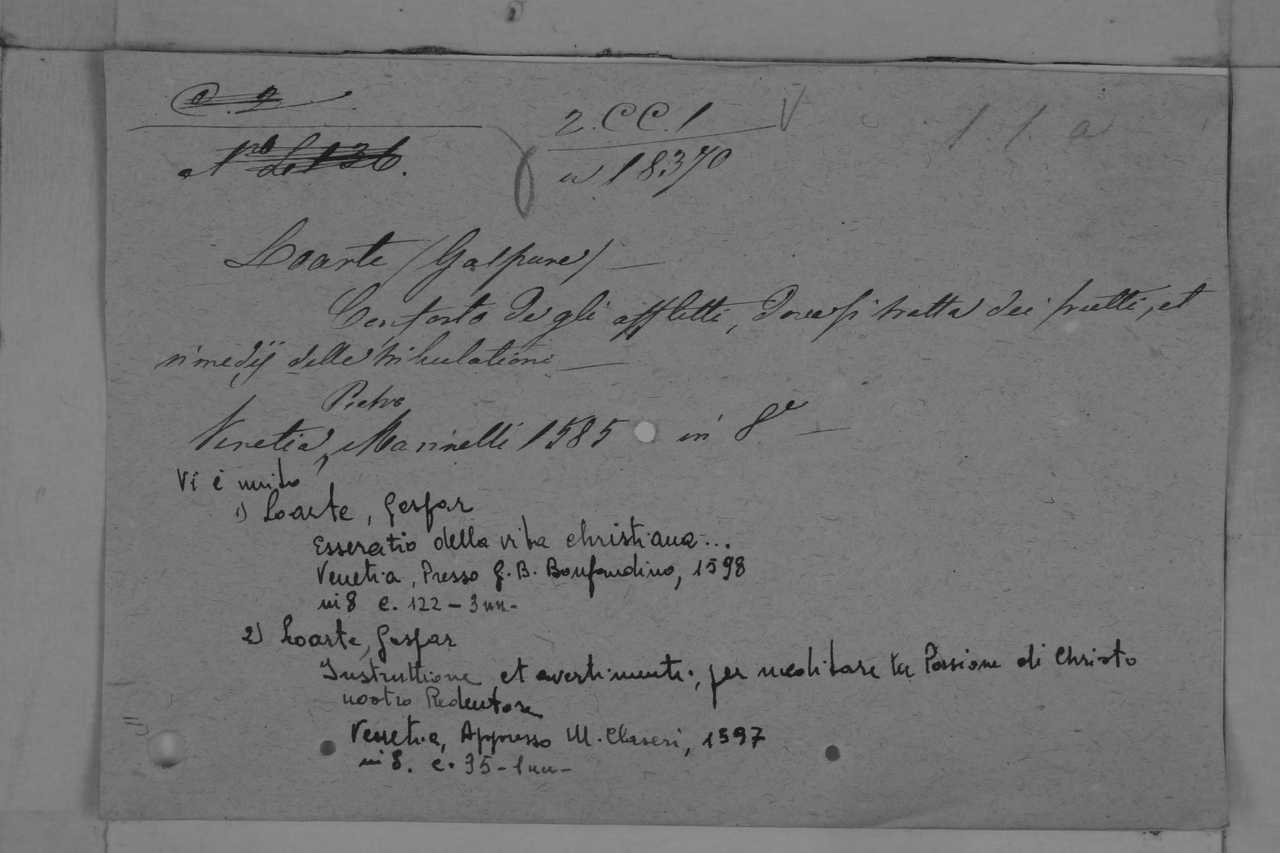 2.CC.1 V
1 1 a
n 18370
Loarte (Gaspare) —
Conforto degli afflitti, dove si tratta dei frutti, et
rimedij delle tribulationi —
Pietro
Venetia, Marinelli 1585 in 8º —
Vi è unito
1) Loarte, Gaspar
Esseratio della vita christiana...
Venetia, Presso G. B. Bonfandino, 1598
in 8 c. 122 - 3 nn -
2) Loarte, Gaspar
Instruttione et avertimenti, per meditare la Passione di Christo
nostro Redentore
Venetia, Appresso M. Claseri, 1597
in 8. c. 35 - 1 nn -